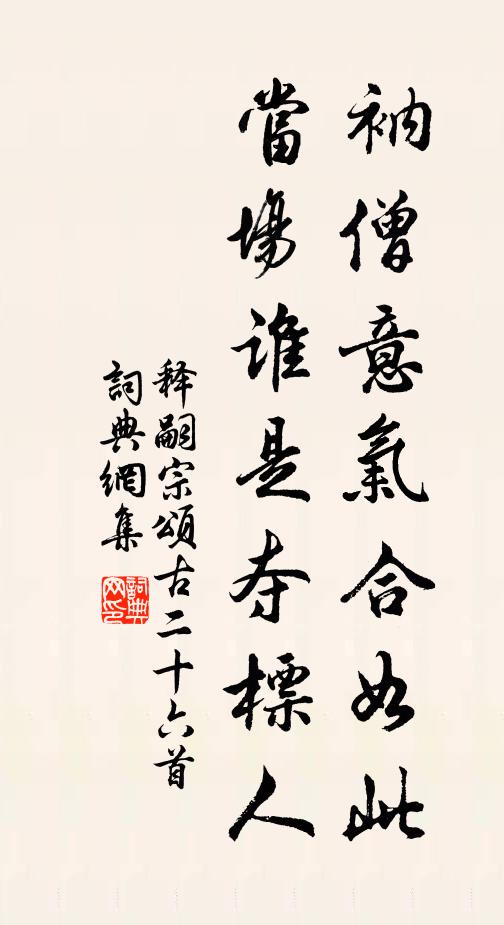 衲僧意氣合如此
當場誰是夺標人
释嗣宗頌古二十六首
詞典網集
詞典
网印